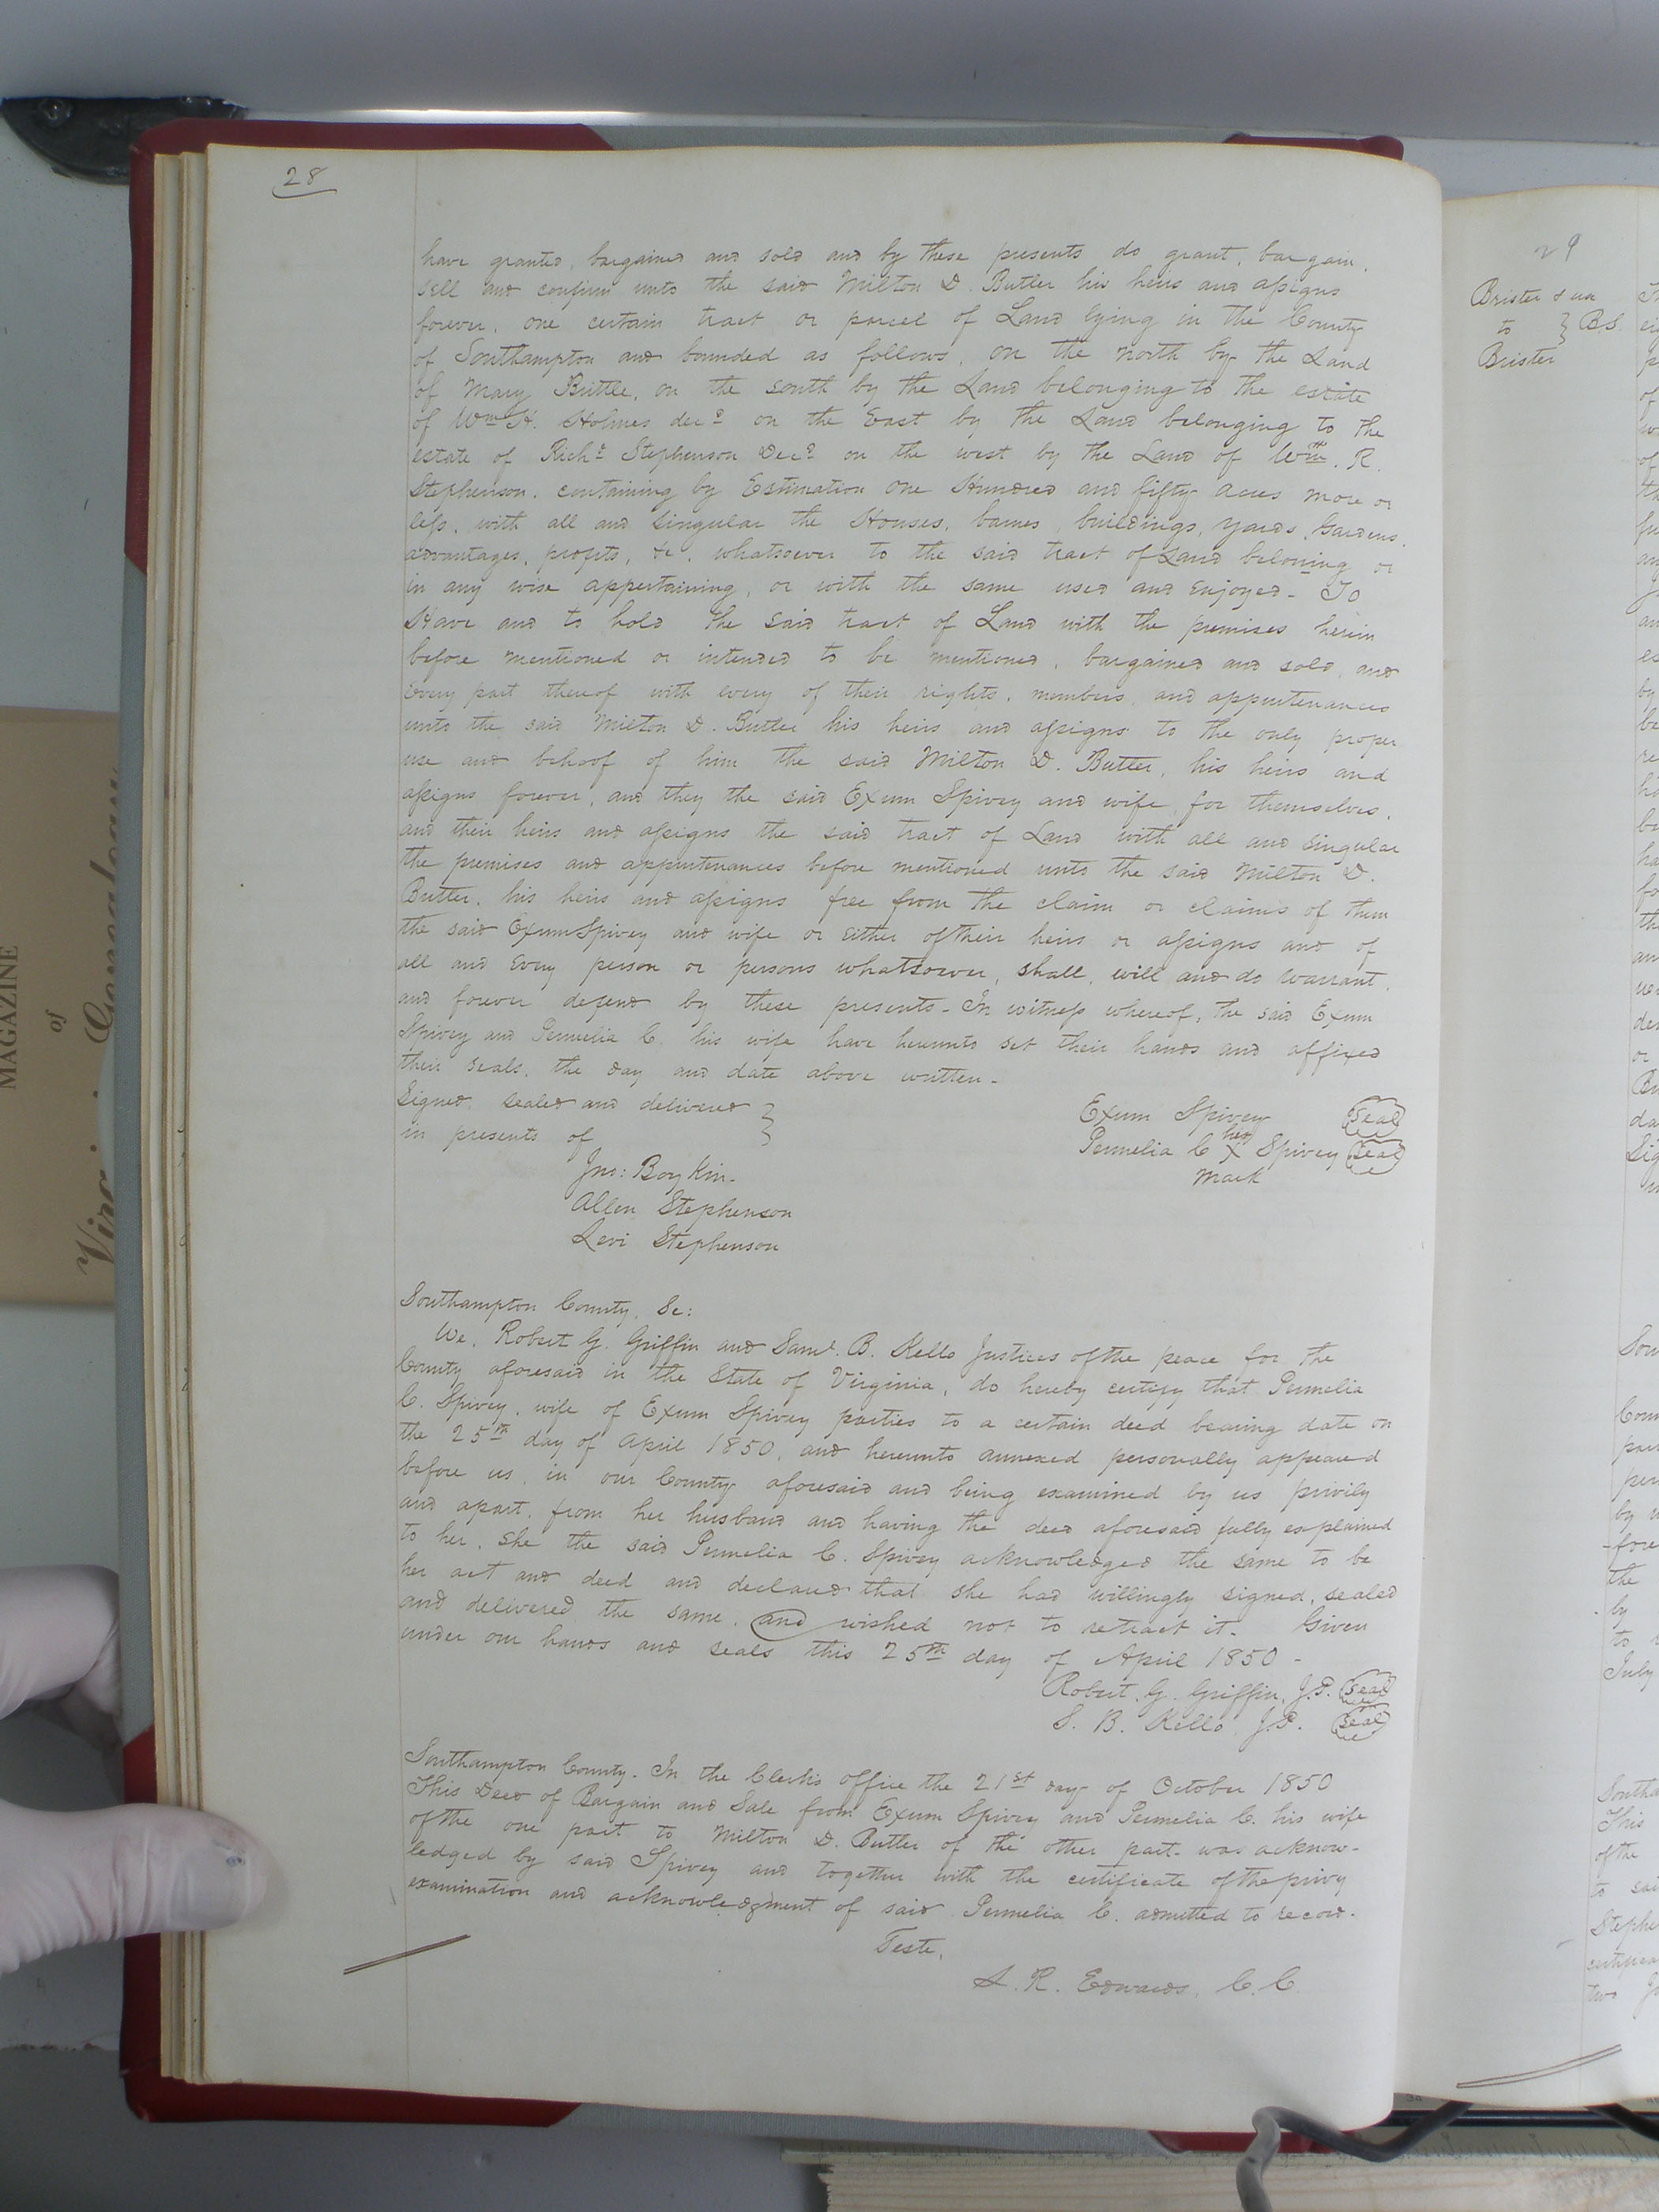 28
have granted, bargained and sold and by these presents do grant, bargain,
sell and confirm unto the said Milton D. Butler his heirs and assigns
forever, one certain tract or parcel of Land lying in the County
of Southampton and bounded as follows, on the north by the Land
of Mary Buttle, on the south by the Land belonging to the estate
of Wm H. Holmes decd on the East by the Land belonging to the
estate of Richd Stephenson Decd on the west by the Land of Wm. R.
Stephenson, containing by Estimation One Hundred and fifty acres more or
less, with all and singular the Houses, barnes, buildings, yards, Gardens,
advantages, profits, &c, whatsoever to the said tract of Land beloning or
in any wise appertaining, or with the same used and enjoyed - To
Have and to hold the said tract of Land with the premises herein
before mentioned or intended to be mentioned, bargained and sold, and
every part thereof with every of their rights, members, and appurtenances
unto the said Milton D. Butler his heirs and assigns to the only proper
use and behoof of him the said Milton D. Butler, his heirs and
assigns forever, and they the said Exum Spivey and wife, for themselves,
and their heirs and assigns the said tract of Land with all and singular
the premises and appurtenances before mentioned unto the said Milton D.
Butler, his heirs and assigns free from the claim or claims of them
the said Exum Spivey and wife or either of their heirs or assigns and of
all and every person or persons whatsoever, shall, will and do warrant,
and forever defend by these presents - In witness whereof, the said Exum
Spivey and Permelia C. his wife have hereunto set their hands and affixed
their seals, the day and date above written -
Signed, sealed and delivered }
in presents of
Exum Spivey Seal
her
Permelia C X Spivey Seal
mark
Jno: Boykin.
Allen Stephenson
Levi Stephenson
Southampton County, Sc:
We, Robert G. Griffin and Saml. B. Kello Justices of the peace for the
County aforesaid in the State of Virginia, do hereby certify that Permelia
C. Spivey, wife of Exum Spivey parties to a certain deed bearing date on
the 25th day of April 1850, and hereunto annexed personally appeared
before us, in our County aforesaid and being examined by us privily
and apart, from her husband and having the deed aforesaid fully explained
to her, she the said Permelia C. Spivey acknowledged the same to be
her act and deed and declared that she had willingly signed, sealed
and delivered the same, and wished not to retract it. Given
under our hands and seals this 25th day of April 1850 -
Robert. G. Griffin, J.P. Seal
S. B. Kello J.P. Seal
Southampton County - In the Clerk's office the 21st day of October 1850
This Deed of Bargain and Sale from Exum Spivey and Permelia C. his wife
of the one part to Milton D. Butler of the other part was acknow-
ledged by said Spivey and together with the certificate of the privy
examination and acknowledgment of said Permelia C. admitted to record.
Teste,
L. R. Edwards, C. C.
29
Brister & ux
to } B.S.
Brister
MAGAZINE
of